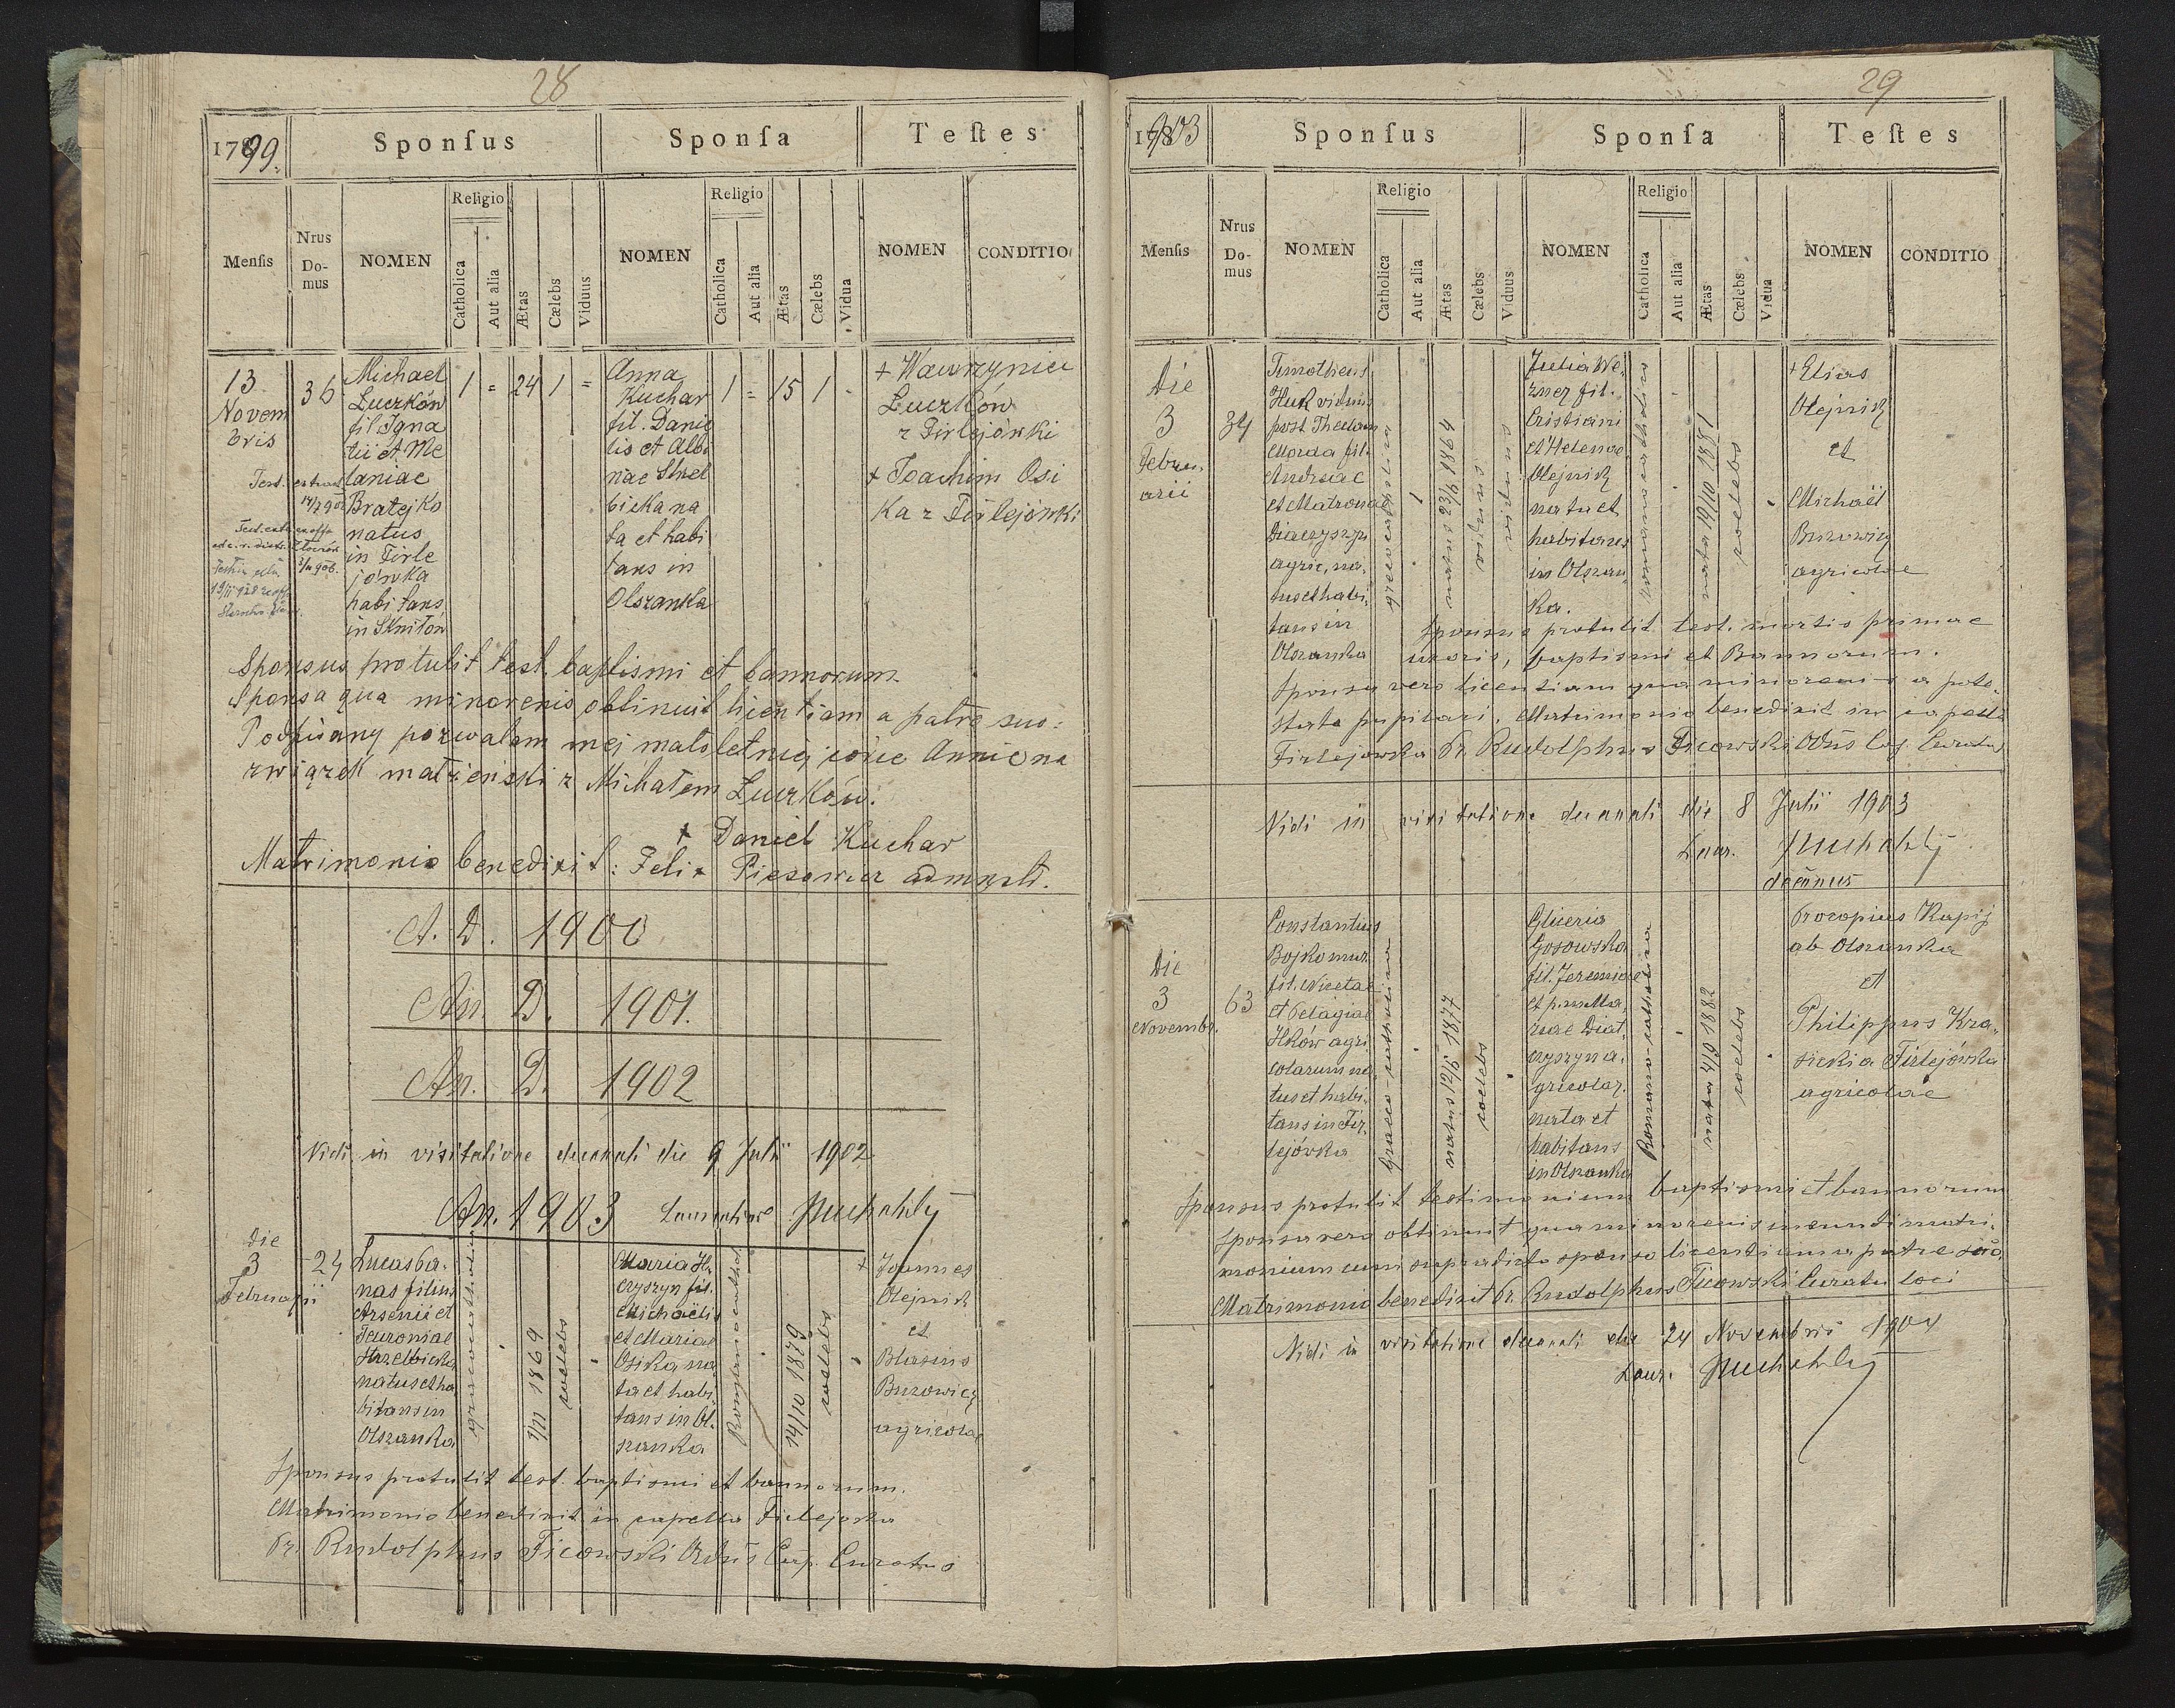 28
1799.
Sponſus
Sponſa
Teſtes
Menſis
Nrus Do-mus
NOMEN
Religio
Catholica
Aut alia
Ætas
Cælebs
Viduus
NOMEN
Religio
Catholica
Aut alia
Ætas
Cælebs
Vidua
NOMEN
CONDITIO
13
Novem
bris
36
Michael
Łuczków
fil. Igna
tii et Me
laniae
Bratejko
natus
in Firle
jówka
habitans
in Skniłow
1 = 24 1 =
Anna
Kuchar
fil. Danie
lis et Albi
nae Strel
bicka na
ta et habi
tans in
Olszanka
1 = 15 1 -
+ Wawrzyniec
Łuczków
z Firlejówki
+ Joachim Osi
ka z Firlejówki
Sponsus protulit test. baptismi et bannorum.
Sponsa qua minorenis obtinuit licentiam a patre suo:
Podpisany pozwalam mej małoletniej córce Annie na
związek małżeński z Michałem Łuczków.
+ Daniel Kuchar
Matrimonio benedixit: Felix
A. D. 1900
An. D. 1901.
An. D. 1902
Vidi in visitatione decanali die 9 Julii 1902
An. 1903
die
3
Februarii
24
Lucas Ba-
nas filius
Arsenii et
Strzelbicka
natus et ha
bitans in
Olszanka
graeco catholica
1/11 1869
coelebs
Maria H-
czyszyn fil.
Michaëlis
et Mariae
Osika na
ta et habi
tans in Ol-
szanka
Romano cathol.
14/10 1879
coelebs
+ Joannes
Olejnik
et
Blasius
Burowicz
agricolae
Sponsus protulit test. baptismi et bannorum.
Matrimonio benedixit in capella Firlejówka
Pr. Rudolphus Ticowski Adus Exp. Curatus
29
1903
Sponſus
Sponſa
Teſtes
Menſis
Nrus Do-mus
NOMEN
Religio
Catholica
Aut alia
Ætas
Cælebs
Viduus
NOMEN
Religio
Catholica
Aut alia
Ætas
Cælebs
Vidua
NOMEN
CONDITIO
Die
3
Febru-
arii
34
Timotheus
Huk viduus
post Theclam
Morda fil.
Andreae
et Matronae
Diaczyszyn
agric. na-
tus et habi-
tans in
Olszanka
graeco catholica
natus 23/2 1864
viduus
Julia We-
zner fil.
Cristiani
et Helenae
Olejnik
nata et
habitans
in Olszan-
ka.
Romano catholica
nata 19/10 1881
coelebs
+ Elias
Olejnik
et
Michaël
Burowicz
agricolae
Sponsus protulit test. mortis primae
uxoris, baptismi et Bannorum.
Sponsa vero licentiam qua minorenis a pote-
state pupilari. Matrimonio benedixit in capella
Firlejowska Pr. Rudolphus Ticowski Adus Curatus
Vidi in visitatione decanali die 8 Julii 1903
Laur.
decanus
Die
3
Novembr.
63
Constantius
Bojkomur
fil. Nicetae
et Pelagiae
Ilków agri
colarum na
tus et habi-
tans in Fir-
lejówka
Graeco-catholica
natus 12/5 1877
coelebs
Gliceria
Gosowska
fil. Jeremiae
czyszyn a-
gricolar.
nata et
habitans
in Olszanka
Romano-catholica
nata 4/9 1882
coelebs
Procopius Kapij
ab Olszanka
et
Philippus Kra-
sicki a Firlejówka
agricolae
Sponsus protulit testimonium baptismi et bannorum
Sponsa vero obtinuit qua minorenis ineundi matri-
monium cum supradicto sponso licentiam a patre suo
Matrimonio benedixit Pr. Rudolphus Ticowski Curatus loci
Vidi in visitatione decanali die 24 Novembris 1904
Laur.